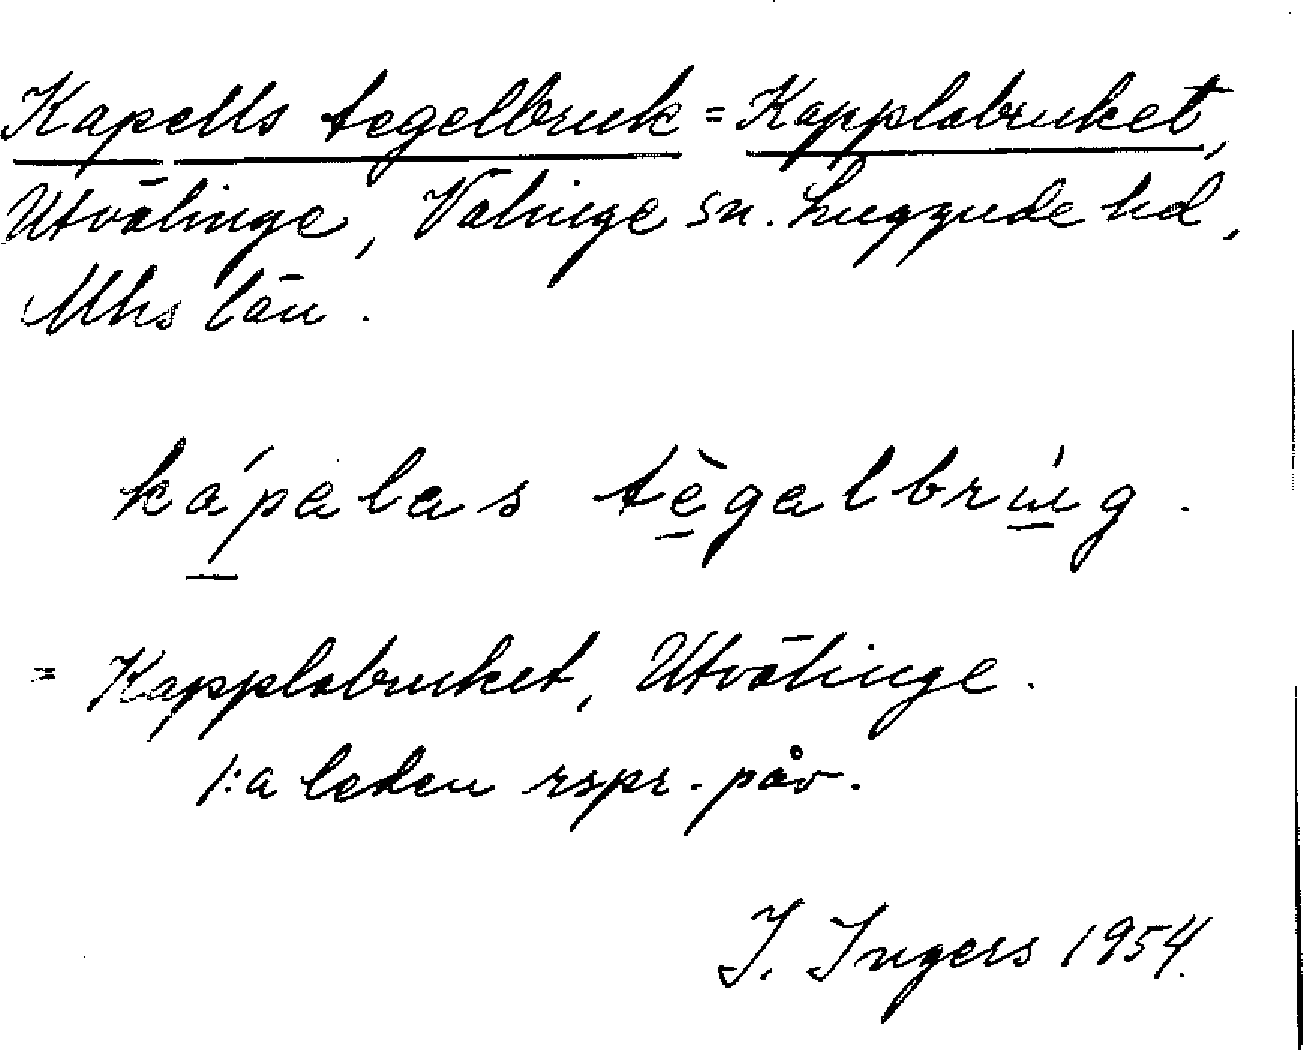 Kapells tegelbruk = Kapplabruket,
Utvälinge, Välinge sn. Luggude hd,
Mhs län.
kápalas tègalbrúg.
= Kapplabruket, Utvälinge.
1:a leden rspr.-påv.
I. Ingers 1954.